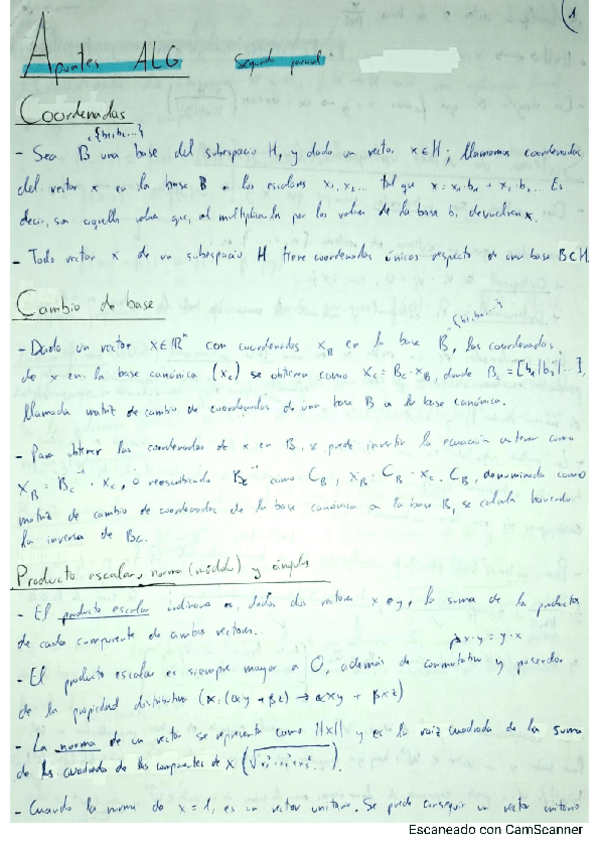 1
Apuntes ALG Segundo parcial
Coordenadas
{b₁,b₂...}
- Sea B una base del subespacio H, y dado un vector x∈H; llamamos coordenadas
del vector x en la base B a los escalares x₁, x₂... tal que x = x₁·b₁ + x₂·b₂... Es
decir, son aquellos valores que, al multiplicarlos por los valores de la base b, devuelven x.
- Todo vector x de un subespacio H tiene coordenadas únicas respecto de una base B⊂H
Cambio de base
{b₁,b₂...}
- Dado un vector x∈ℝⁿ con coordenadas x_B en la base B, las coordenadas
de x en la base canónica (x_c) se obtienen como x_c = B_c · x_B, donde B_c = [b₁|b₂|...],
llamada matriz de cambio de coordenadas de una base B a la base canónica.
- Para obtener las coordenadas de x en B, se puede invertir la ecuación anterior como
x_B = B_c⁻¹ · x_c, o reescribiendo B_c⁻¹ como C_B, x_B = C_B · x_c. C_B, denominada como
matriz de cambio de coordenadas de la base canónica a la base B, se calcula haciendo
la inversa de B_c.
Producto escalar, norma (módulo) y ángulos
- El producto escalar indica, dados dos vectores x e y, la suma de los productos
de cada componente de ambos vectores.
x·y = y·x
- El producto escalar es siempre mayor a 0, además de conmutativo y poseedor
de la propiedad distributiva (x·(αy + βz) → αxy + βxz)
- La norma de un vector se representa como ||x|| y es la raíz cuadrada de la suma
de los cuadrados de los componentes de x
- Cuando la norma de x = 1, es un vector unitario. Se puede conseguir un vector unitario
Escaneado con CamScanner